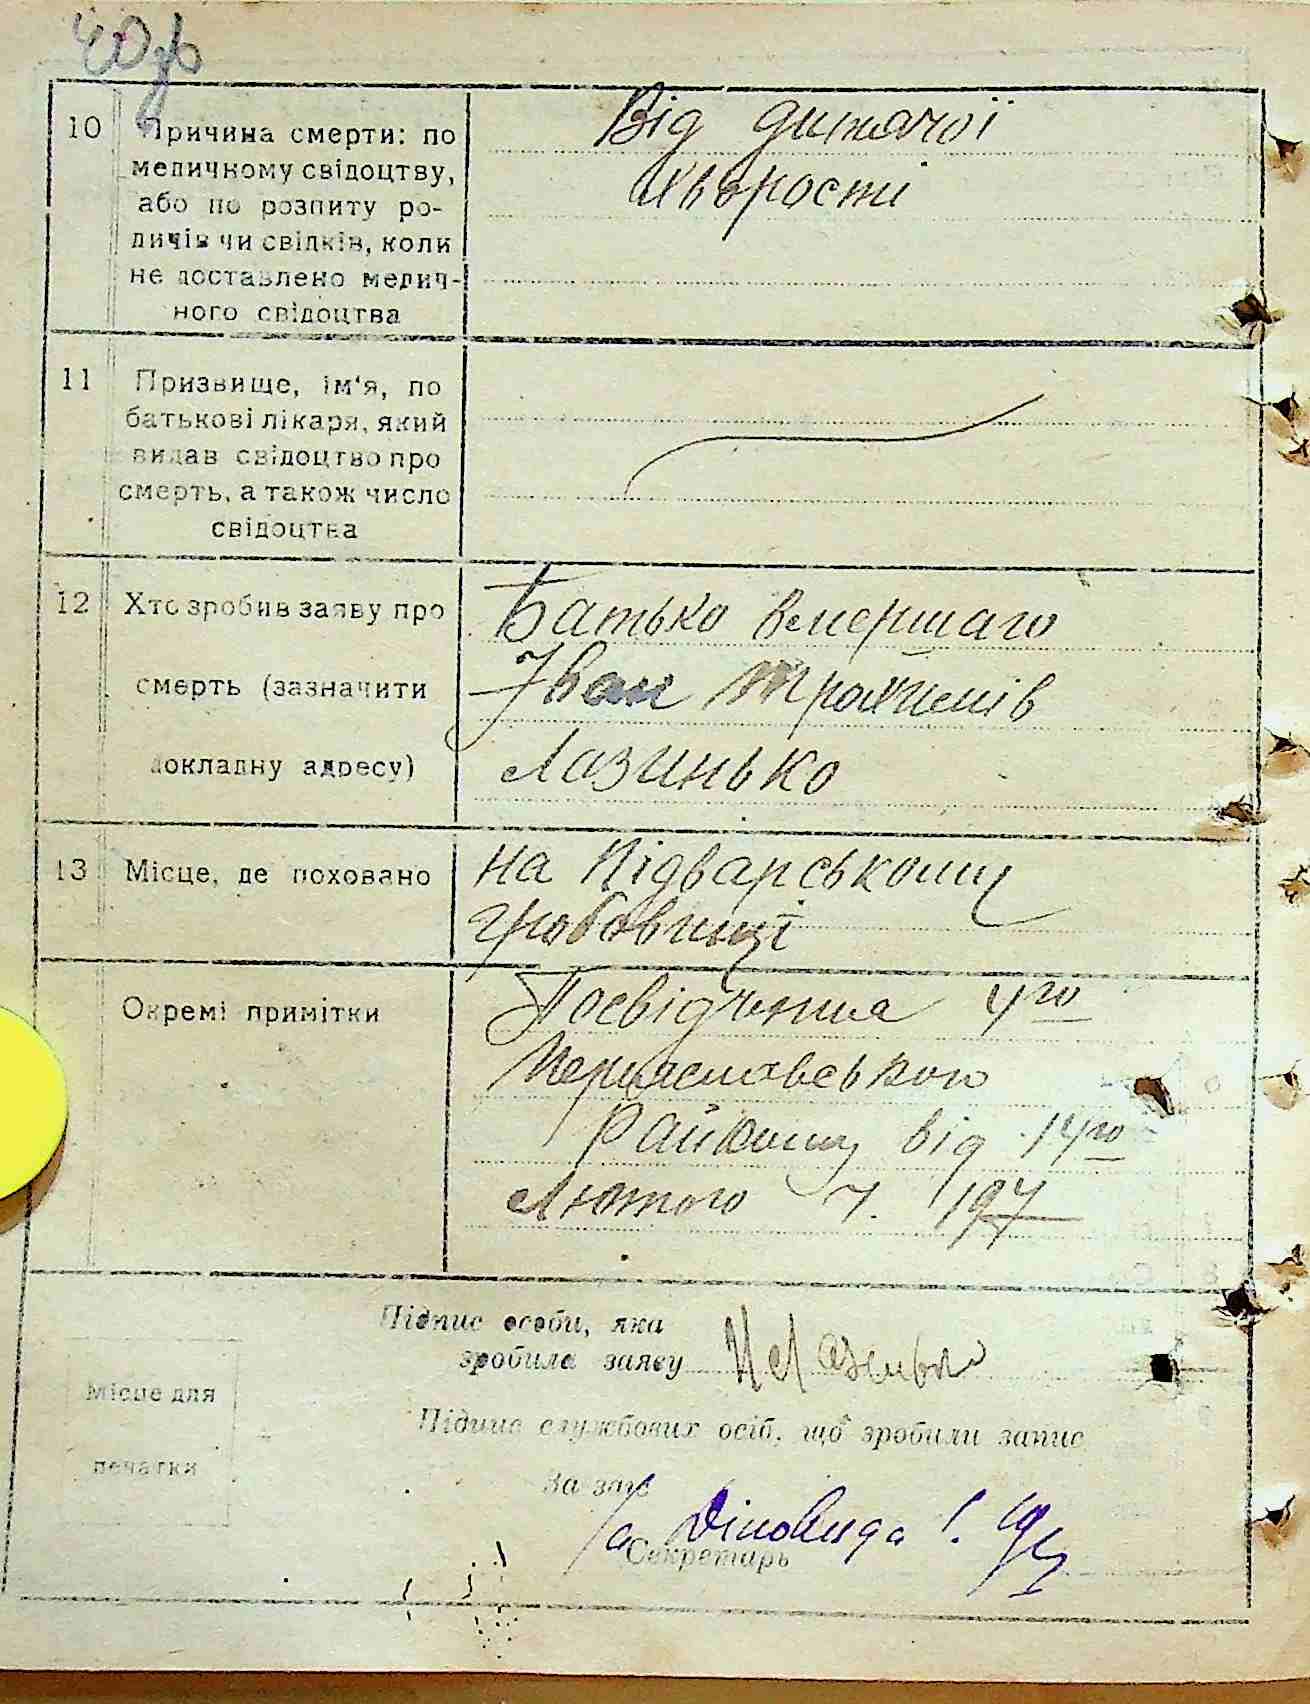 40зв
10 Причина смерти: по
медичному свідоцтву,
або по розпиту ро-
дичів чи свідків, коли
не доставлено медич-
ного свідоцтва
Від дитячої
хворости
11 Призвище, ім'я, по
батькові лікаря, який
видав свідоцтво про
смерть, а також число
свідоцтва
12 Хто зробив заяву про
смерть (зазначити
докладну адресу)
Батько вмершаго
Іван
Лазинько
13 Місце, де поховано
на Підварському
гробовищі
Окремі примітки
Посвідчення 4го
Переяславського
Райкому від 14го
Лютого
Підпис особи, яка
зробила заяву И Лазинько
Місце для
печатки
Підпис службових осіб, що зробили запис
За загс
Секретарь